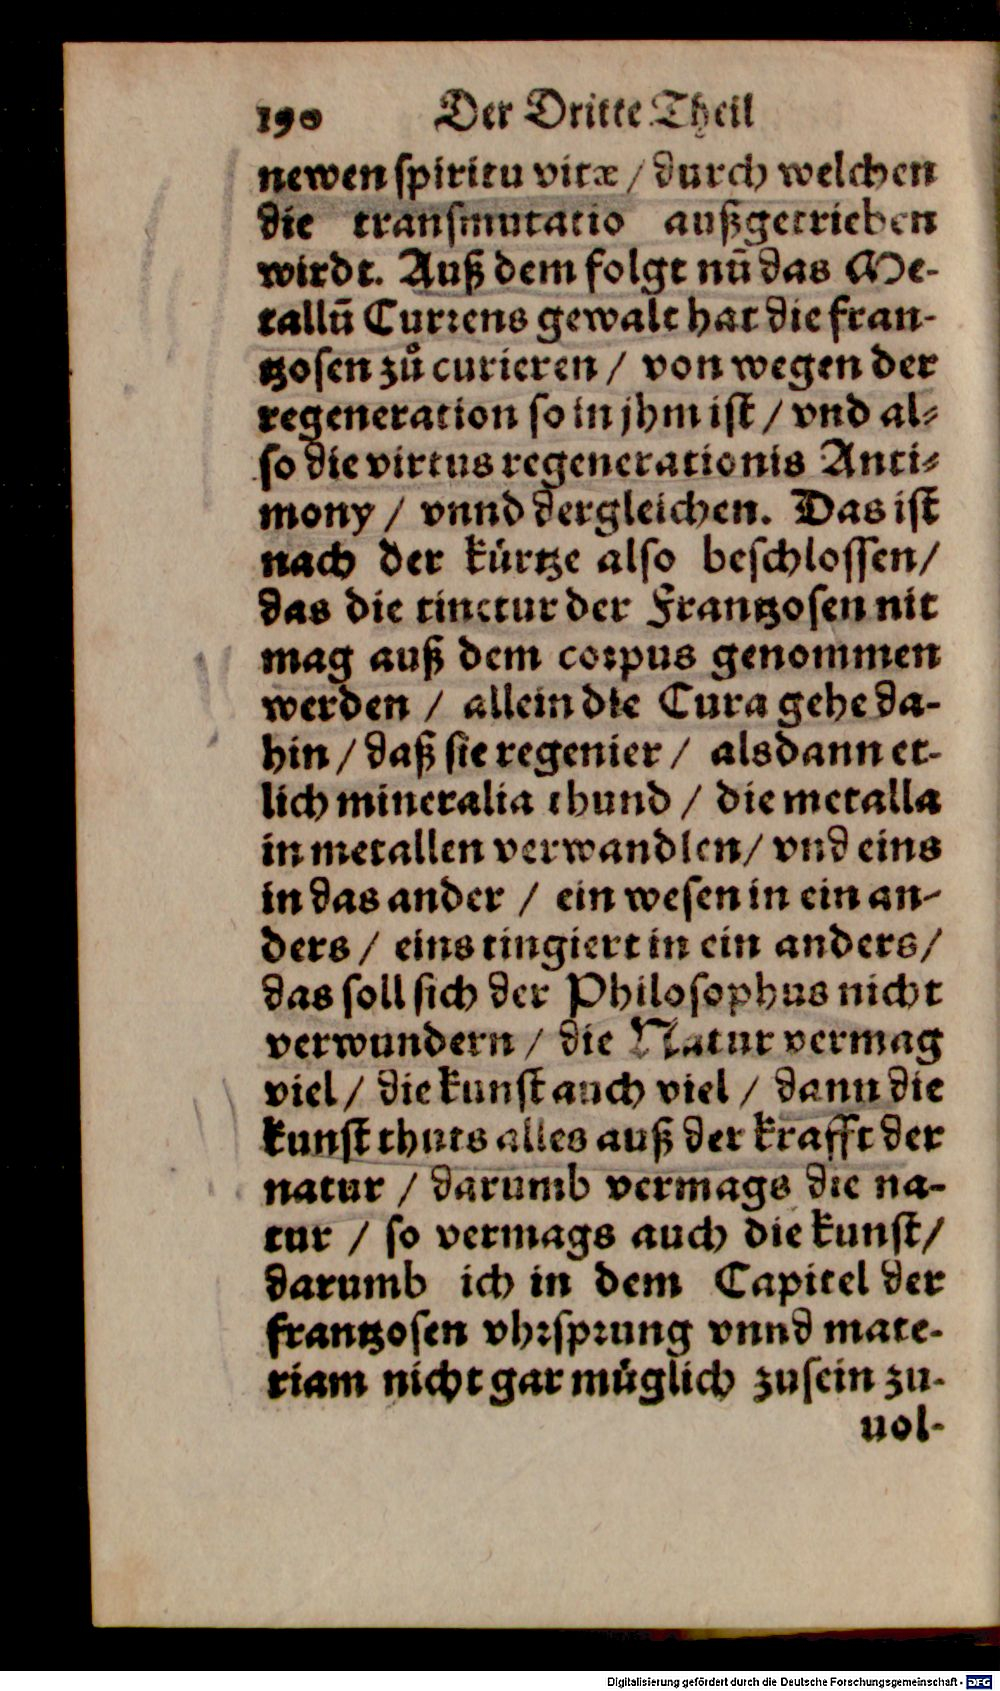 190 Der Dritte Theil
newen spiritu vitæ / durch welchen
die transmutatio außgetrieben
wirdt. Auß dem folgt nũ das Me-
tallũ Currens gewalt hat die fran-
tzosen zů curieren / von wegen der
regeneration so in jhm ist / vnd al-
so die virtus regenerationis Anti-
mony / vnnd dergleichen. Das ist
nach der kürtze also beschlossen/
das die tinctur der Frantzosen nit
mag auß dem corpus genommen
werden / allein die Cura gehe da-
hin / daß sie regenier / alsdann et-
lich mineralia thund / die metalla
in metallen verwandlen/ vnd eins
in das ander / ein wesen in ein an-
ders / eins tingiert in ein anders/
das soll sich der Philosophus nicht
verwundern / die Natur vermag
viel / die kunst auch viel / dann die
kunst thuts alles auß der krafft der
natur / darumb vermags die na-
tur / so vermags auch die kunst/
darumb ich in dem Capitel der
frantzosen vhrsprung vnnd mate-
riam nicht gar müglich zusein zu-
uol-
Digitalisierung gefördert durch die Deutsche Forschungsgemeinschaft - DFG